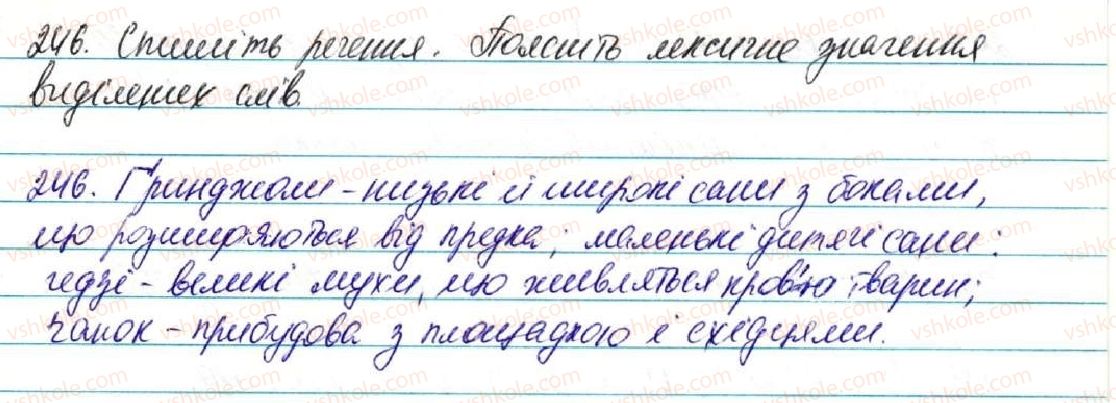 246. Спишіть речення. Поясніть лексичне значення
виділених слів.
246. Ґринджоли - низькі й широкі сани з боками,
що розширяються від предка; маленькі дитячі сани:
ґедзі - великі мухи, що живляться кров'ю тварин;
ґанок - прибудова з площадкою і східцями.